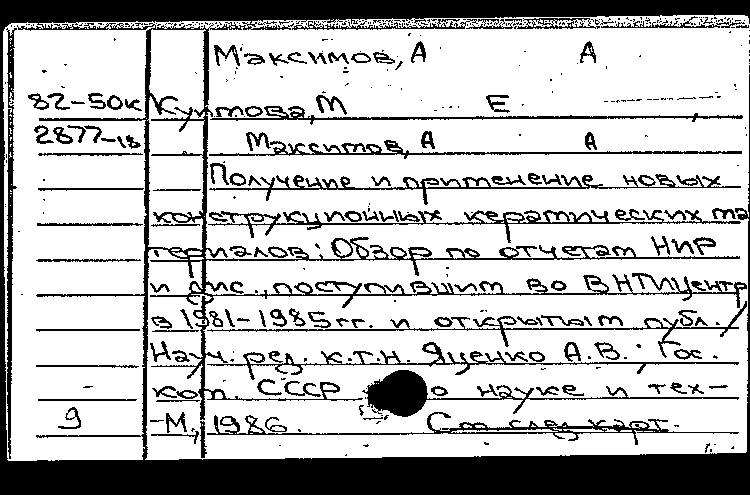 Максимов, А А
82-50к Куптова, М Е
2877-18 Максимов, А А
Получение и применение новых
конструкционных керамических ма
териалов: Обзор по отчетам НИР
и дис., поступившим во ВНТИЦентр
в 1981-1985гг. и открытым публ. /
Науч. ред. к.т.н. Яценко А.В.; Гос.
ком. СССР о науке и тех-
9 -М, 1986. См след карт.